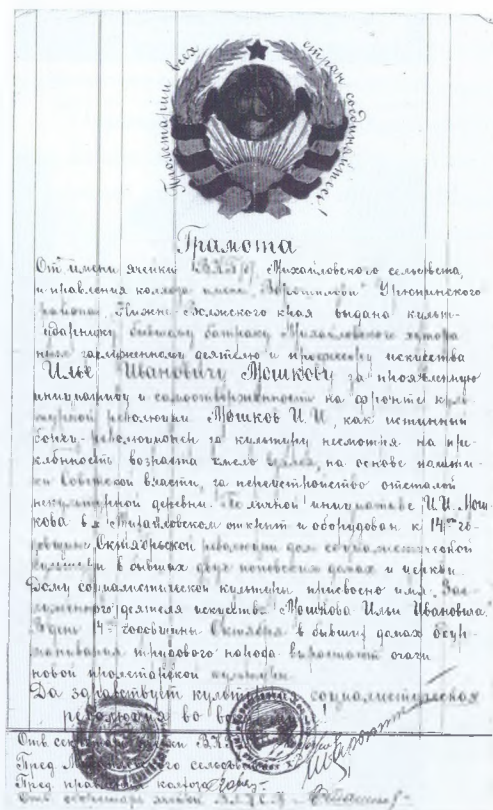 Пролетарии всех стран соединяйтесь!
Грамота
От имени ячейки ВКП(б), Михайловского сельсовета,
и правления колхоза имени Ворошилова Урюпинского
района, Нижне-Волжского края выдана культ-
ударнику бывшему батраку Михайловского хутора
ныне заслуженному деятелю и профессору искусства
Илье Ивановичу Мошкову за проявленную
инициативу и самоотверженность на фронте куль-
турной революции Мошков И.И., как истинный
боец-революционер за культуру несмотря на пре-
клонность возраста смело взялся, на основе полити-
ки Советской власти, за переустройство отсталой
некультурной деревни. По личной инициативе И.И. Мош-
кова в Михайловском открыт и оборудован к 14ой го-
довщине Октябрьской революции дом социалистической
культуры в бывших двух поповских домах и церкви.
Дому социалистической культуры присвоено имя Зас-
луженного деятеля искусств Мошкова Ильи Ивановича.
В день 14ой годовщины Октября в бывших домах
трудового народа вырастают очаги
новой пролетарской культуры.
Да здравствует культурная социалистическая
революция во !
Отв. секретарь ячейки ВКП
Пред. Михайловского сельсовета
Пред. правления колхоза
Отв. секретарь